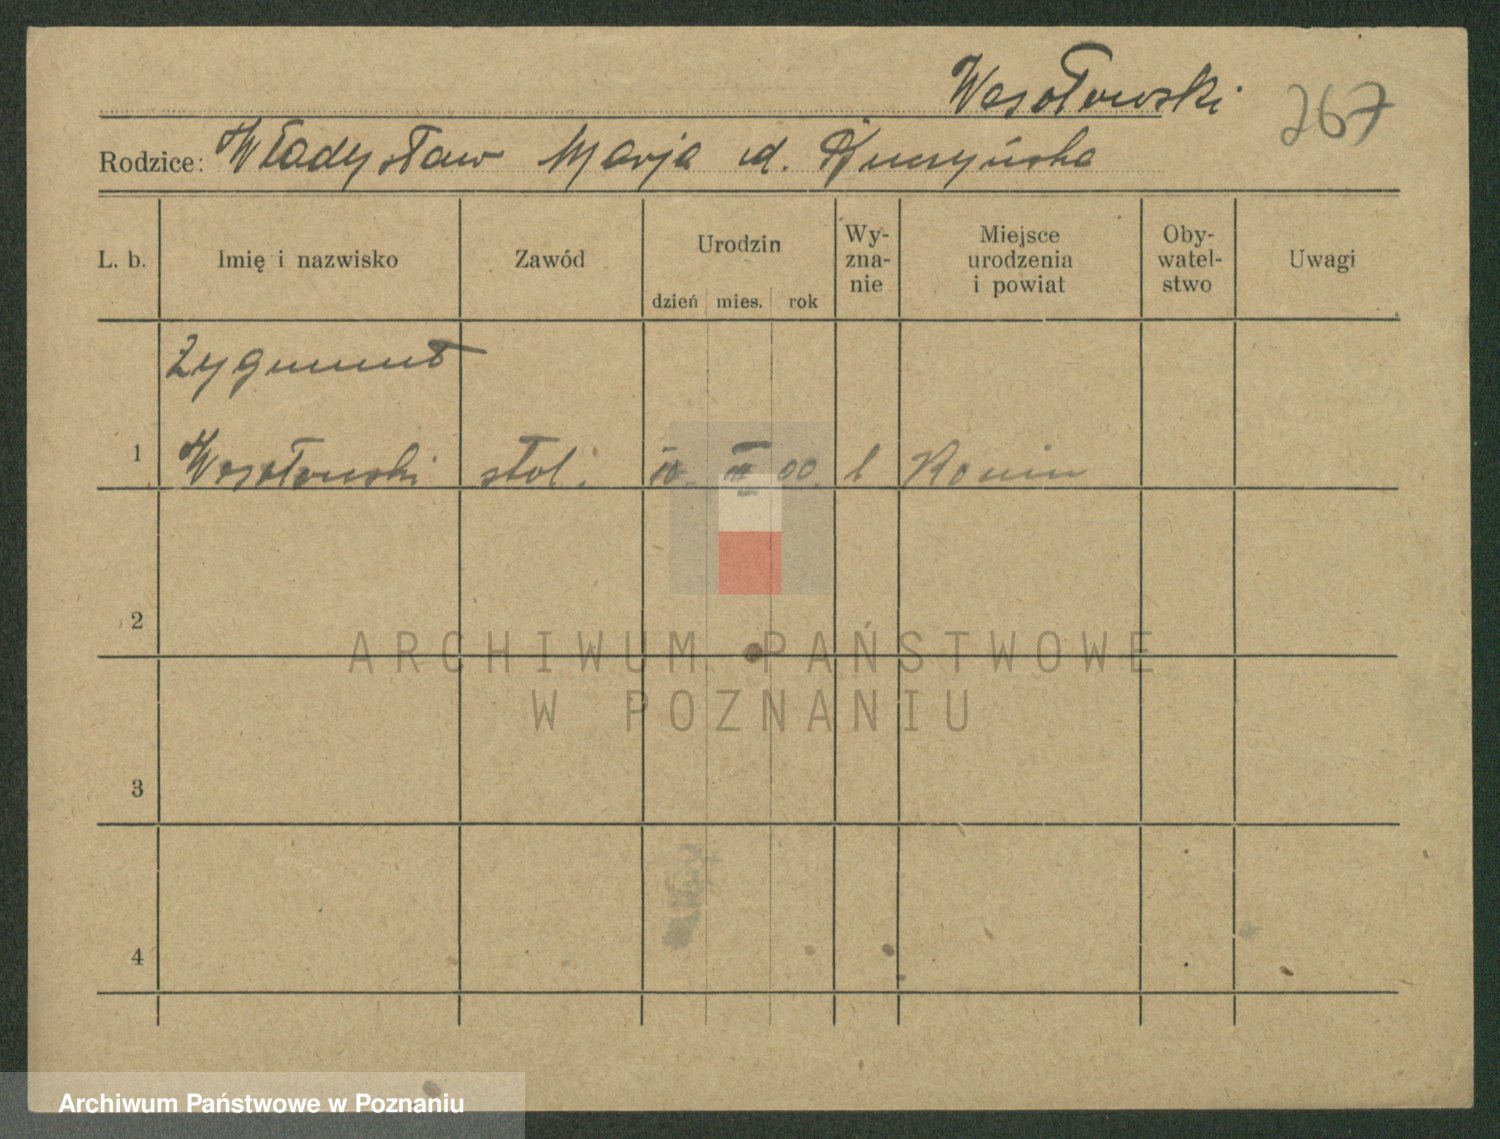 Wesołowski 267
Rodzice: Władysław Marja ud.
L. b. Imię i nazwisko Zawód Urodzin Wy-
zna-
nie Miejsce
urodzenia
i powiat Oby-
watel-
stwo Uwagi
dzień mies. rok
Zygmunt
1 Wesołowski stol. 00. Konin
2
3
4
ARCHIWUM PAŃSTWOWE
W POZNANIU
Archiwum Państwowe w Poznaniu